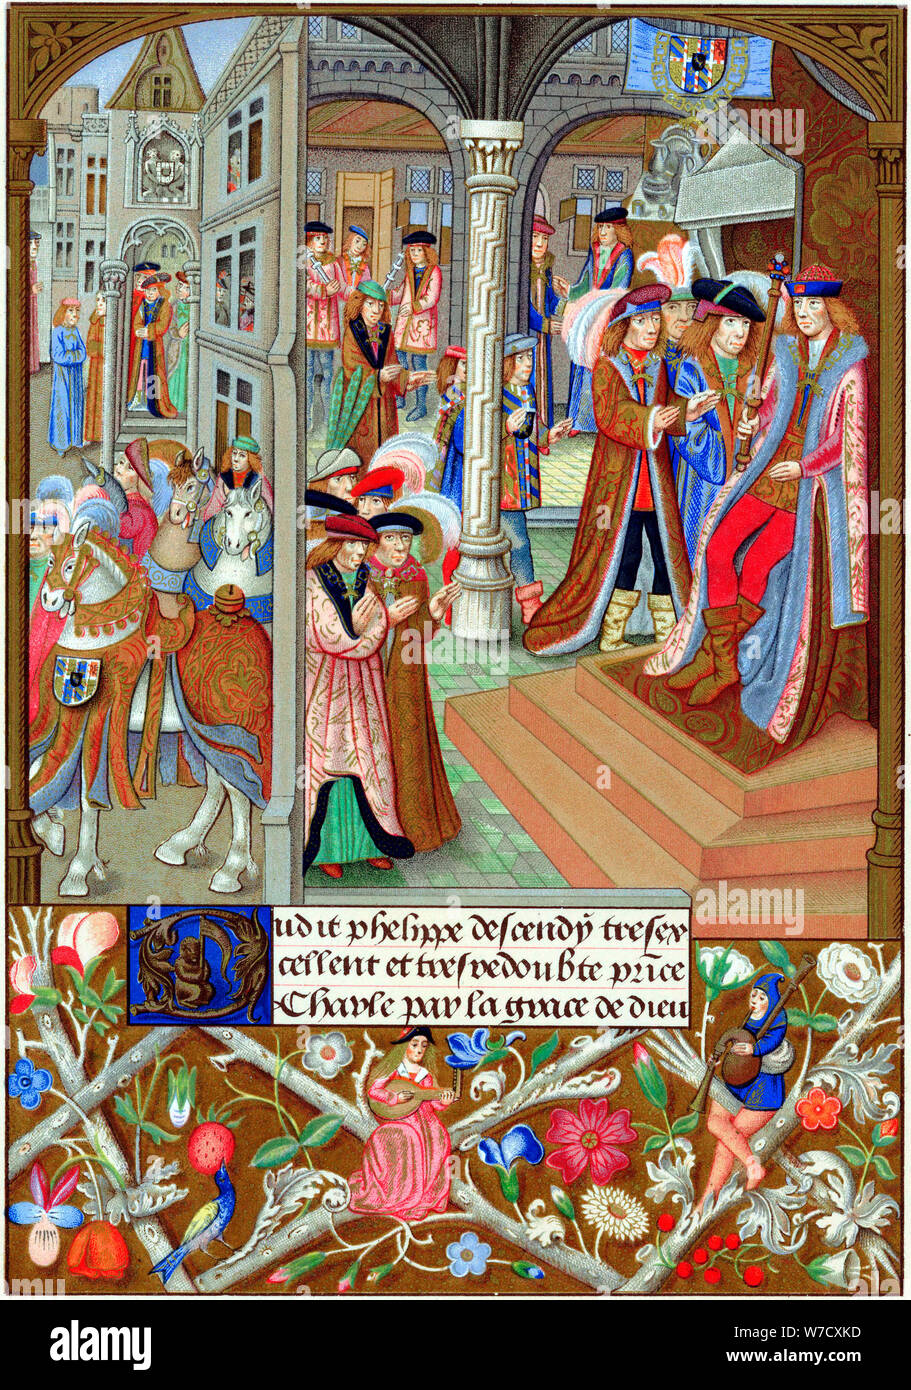 Dudit phelippe descendỹ tresex
cellent et tresredoubte prīce
Charle par la grace de dieu
alamy
Image ID: W7CXKD
www.alamy.com